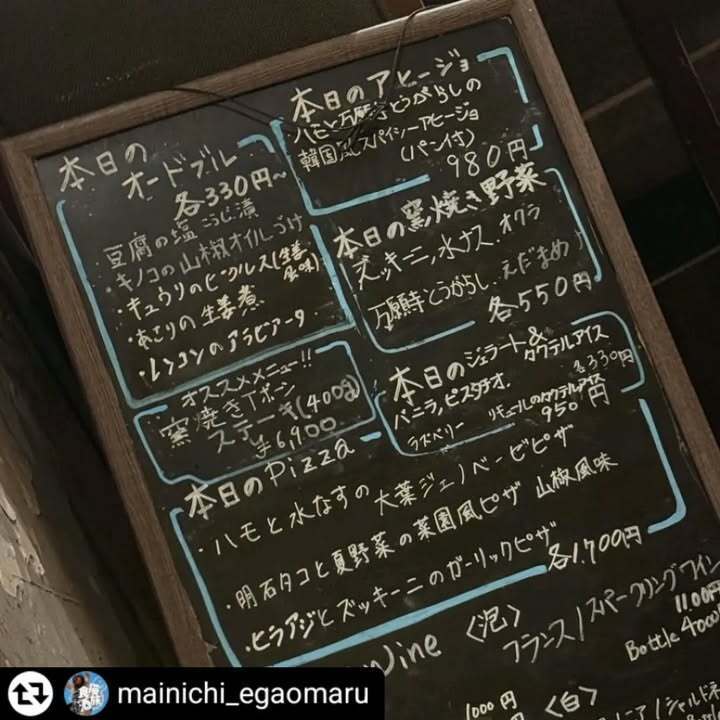 本日の
オードブル
各330円〜
・豆腐の塩こうじ漬
・キノコの山椒オイルづけ
・キュウリのピクルス(生姜風味)
・あさりの生姜煮
・レンコンのアラビアータ
オススメメニュー!!
窯焼きTボーン
ステーキ(400g)
¥6,900
本日のアヒージョ
ハモと万願寺とうがらしの
韓国風スパイシーアヒージョ
(パン付)
980円
本日の窯焼き野菜
ズッキーニ,水ナス.オクラ
万願寺とうがらし.えだまめ
各550円
本日のジェラート&
カクテルアイス
バニラ,ピスタチオ.
各330円
ラズベリー
リキュールのカクテルアイス
950円
本日のPizza
・ハモと水なすの大葉ジェノベーゼピザ
・明石タコと夏野菜の菜園風ピザ 山椒風味
・ヒラアジとズッキーニのガーリックピザ
各1,700円
Wine
〈泡〉
フランス/スパークリングワイン
1100円
Bottle 4000
1000円
〈白〉
mainichi_egaomaru